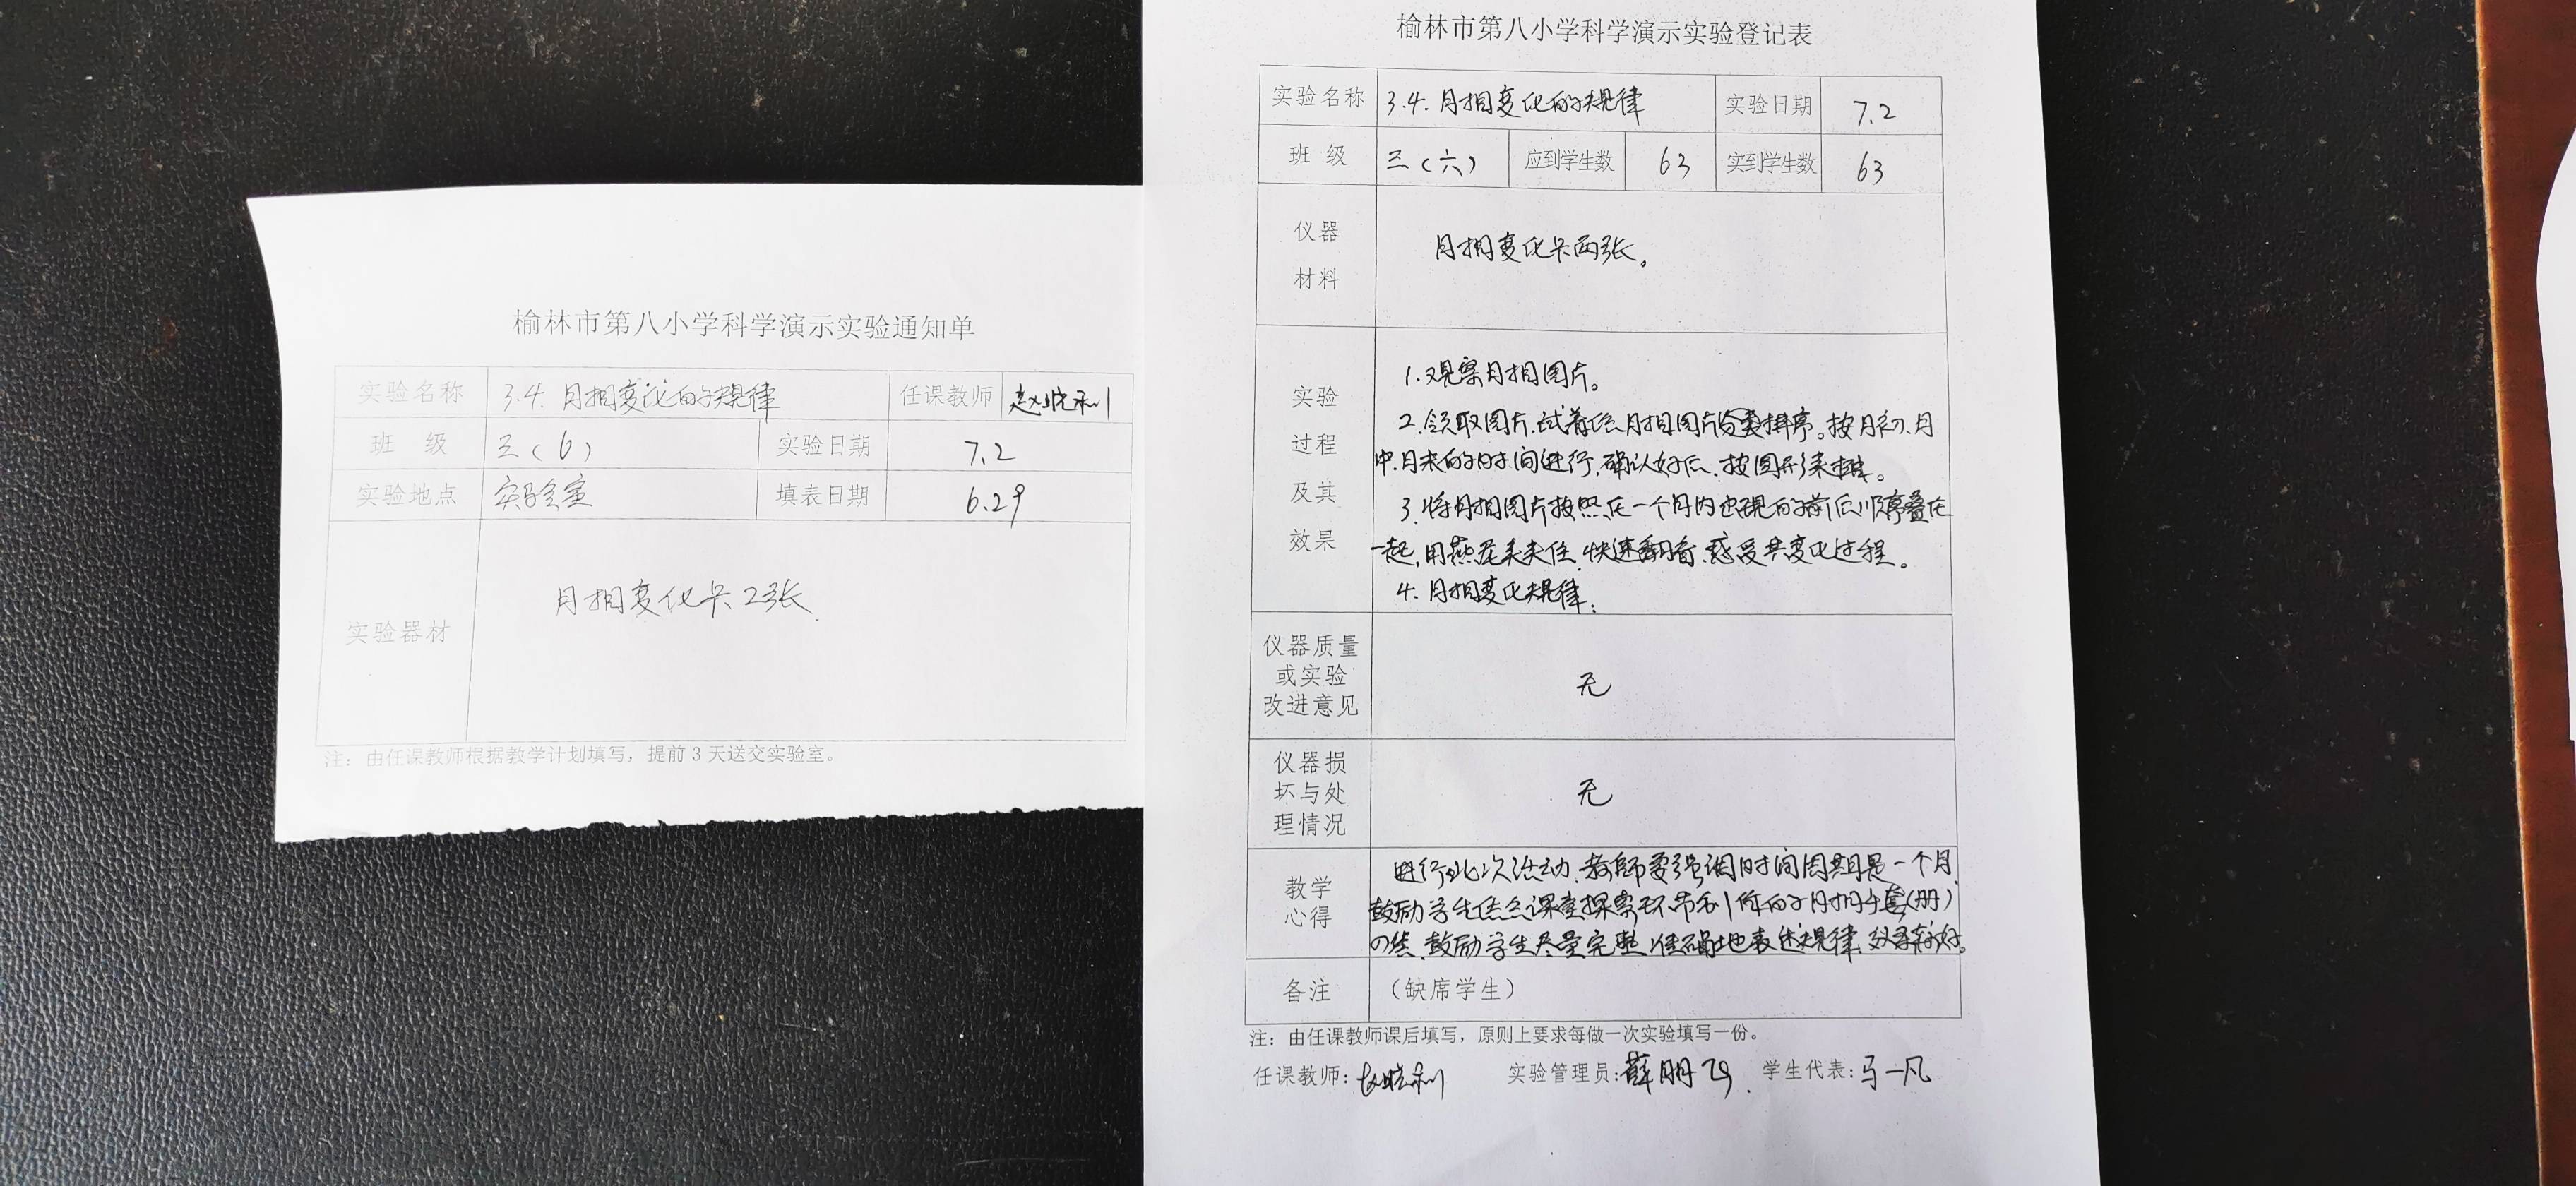 榆林市第八小学科学演示实验通知单
实验名称 3.4.月相变化的规律 任课教师 赵晓利
班 级 三(6) 实验日期 7.2
实验地点 实验室 填表日期 6.29
实验器材 月相变化卡2张
注：由任课教师根据教学计划填写，提前3天送交实验室。
榆林市第八小学科学演示实验登记表
实验名称 3.4.月相变化的规律 实验日期 7.2
班 级 三(六) 应到学生数 63 实到学生数 63
仪器
材料
月相变化卡两张。
实验
过程
及其
效果
1.观察月相图片。
2.领取图片.试着给月相图片分类排序。按月初、月
中.月末的时间进行,确认好后.按图形来排。
3.将月相图片按照在一个月内出现的前后顺序叠在
一起,用燕尾夹夹住.快速翻看.感受其变化过程。
4.月相变化规律.
仪器质量
或实验
改进意见
无
仪器损
坏与处
理情况
无
教学
心得
进行此次活动.教师要强调时间周期是一个月.
鼓励学生结合课堂探索环节制作的月相手(册)
鼓励学生尽量完整.准确地表述规律.效果较好。
备注 （缺席学生）
注：由任课教师课后填写，原则上要求每做一次实验填写一份。
任课教师: 赵晓利 实验管理员: 薛朋飞 学生代表: 马一凡